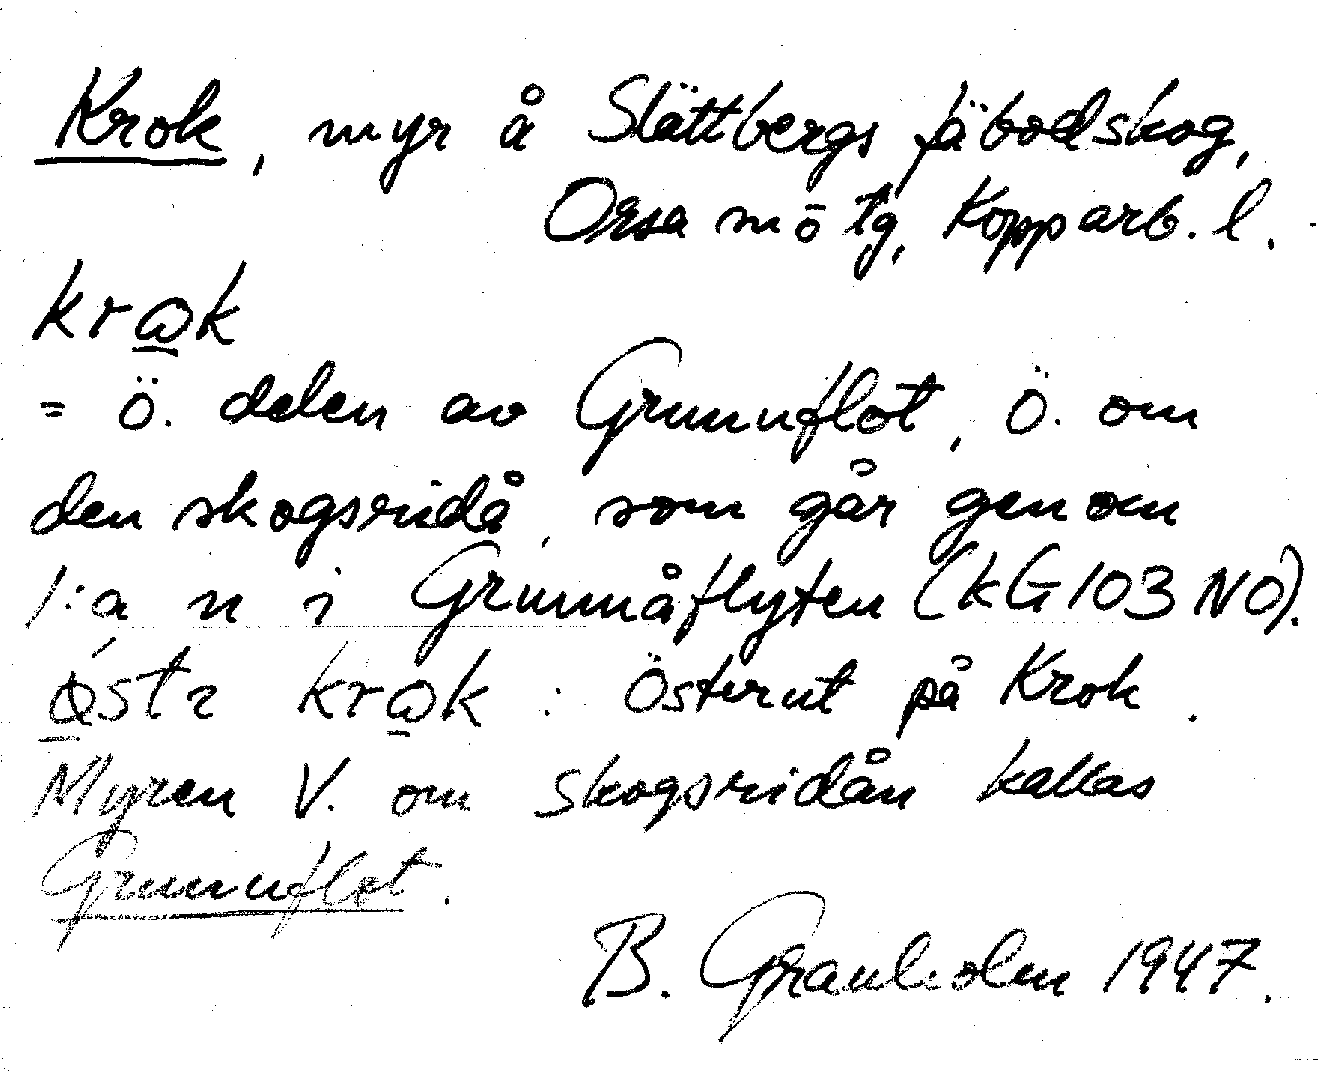 Krok, myr å Slättbergs fäbodskog,
Orsa m ō tg, Kopparb. l.
= ö. delen av Grunuflot, ö. om
den skogsridå, som går genom
1:a n i Grunnåflyten (KG 103 NO).
: Österut på Krok.
Myren V. om skogsridån kallas
Grunuflot.
B. Granholm 1947.